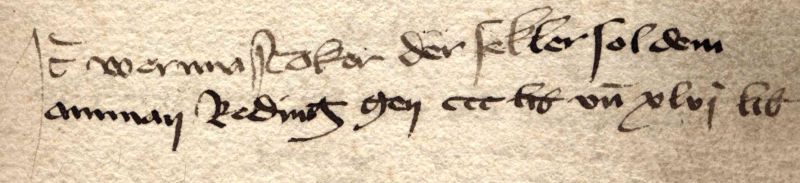 It werna stoker der sekler sol dem
amman Reding gen ccc lib vn̄ xlvj lib